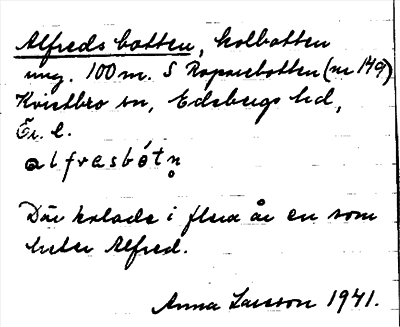 Alfreds botten, kolbotten
ung. 100 m. S Roparebotten (nr 149)
Kvistbro sn, Edsbergs hd,
Ör. l.
alfrasbótn̥
Där kolade i flera år en som
heter Alfred.
Anna Larsson 1941.